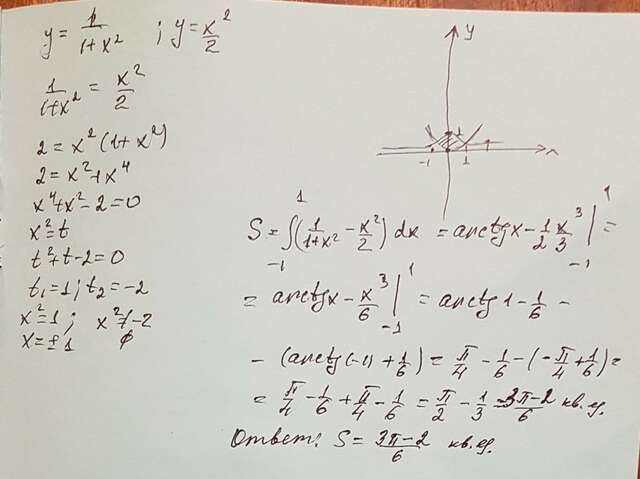 y = 1/(1+x²) ; y = x²/2
1/(1+x²) = x²/2
2 = x²(1+x²)
2 = x²+x⁴
x⁴+x²-2=0
x²=t
t²+t-2=0
t₁=1; t₂=-2
x²=1; x²≠-2
x=±1 ∅
y
1
-1 1 x
S = ∫₋₁¹ (1/(1+x²) - x²/2) dx = arctg x - 1/2 x³/3 |₋₁¹ =
= arctg x - x³/6 |₋₁¹ = arctg 1 - 1/6 -
- (arctg(-1) + 1/6) = π/4 - 1/6 - (-π/4 + 1/6) =
= π/4 - 1/6 + π/4 - 1/6 = π/2 - 1/3 = (3π-2)/6 кв. ед.
Ответ: S = (3π-2)/6 кв. ед.